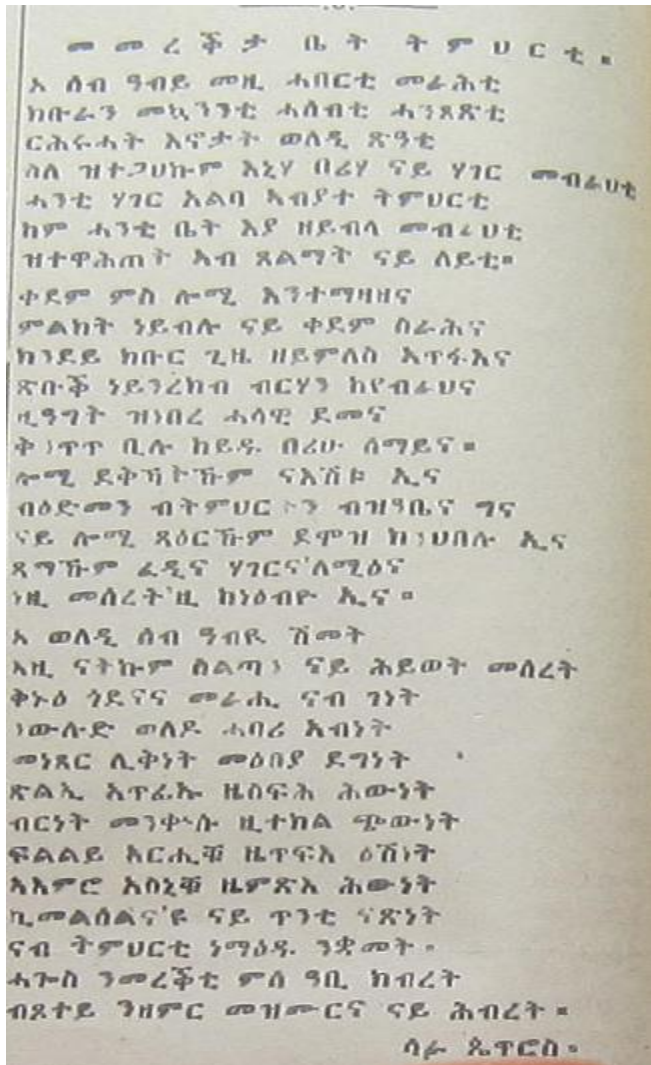 መመረቕታ ቤት ትምህርቲ።
ኦ ሰብ ዓብይ መዚ ሓበርቲ መራሕቲ
ክቡራን መኳንንቲ ሓሰብቲ ሓንጸጽቲ
ርሕሩሓት እኖታት ወለዲ ጽዓቲ
ስለ ዝተጋህኩም እኒሃ በሪሃ ናይ ሃገር መብራህቲ
ሓንቲ ሃገር እልባ ኣብያተ ትምህርቲ
ከም ሓንቲ ቤት እያ ዘይብላ መብራህቲ
ዝተዋሕጠት ኣብ ጸልማት ናይ ለይቲ።
ቀደም ምስ ሎሚ እንተማዛዘና
ምልክት ነይብሉ ናይ ቀደም ስራሕና
ክንደይ ክቡር ጊዜ ዘይምለስ ኣጥፋእና
ጽቡቕ ነይንረክብ ብርሃን ከየብራህና
ዚዓግት ዝነበረ ሓላዊ ደመና
ቅንጥጥ ቢሉ ከይዱ በሪሁ ሰማይና።
ሎሚ ደቅኻትኹም ናእሽቱ ኢና
ብዕድመን ብትምህርትን ብዝዓቤና ግና
ናይ ሎሚ ጻዕርኹም ደሞዝ ክንህበሉ ኢና
ጻማኹም ፈዲና ሃገርና'ለሚዕና
ነዚ መሰረት'ዚ ከነዕብዮ ኢና።
ኦ ወለዲ ሰብ ዓብዪ ሽመት
እዚ ናትኩም ስልጣን ናይ ሕይወት መሰረት
ቅኑዕ ጎደናና መራሒ ናብ ገነት
ነውሉድ ወለዶ ሓባሪ ኣብነት
መነጸር ሊቅነት መዕበያ ደግነት
ጽልኢ ኣጥፊኡ ዜስፍሕ ሕውነት
ብርነት መንቀሱ ዚተክል ጭውነት
ፍልልይ ኣርሒቑ ዜጥፍእ ዕሽነት
ኣእምሮ ኣስኒቑ ዜምጽእ ሕውነት
ኪመልሰልና'ዩ ናይ ጥንቲ ናጽነት
ናብ ትምህርቲ ነማዕዱ ንቋመት።
ሓጐስ ንመረቕቲ ምሰ ዓቢ ክብረት
ብጾተይ ንዘምር መዝሙርና ናይ ሕብረት።
ሳራ ጴጥሮስ።